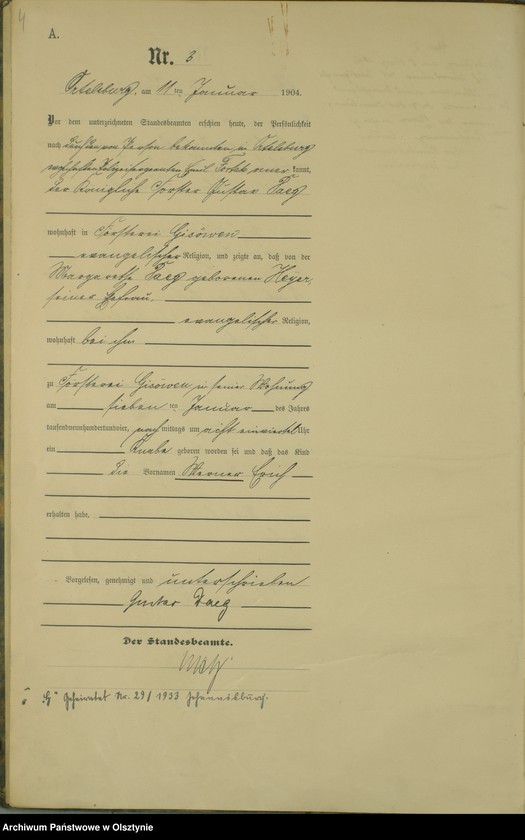 4
A.
Nr. 3
Ortelsburg, am 11 ten Januar 1904.
Vor dem unterzeichneten Standesbeamten erschien heute, der Persönlichkeit
nach durch den von Person bekannten, in Ortelsburg
wohnhaften Polizeisergeanten Emil kannt,
der Königliche Förster Gustav Daeg
wohnhaft in Försterei Gisöwen
evangelischer Religion, und zeigte an, daß von der
Margarethe Daeg geborenen Heyer,
seiner Ehefrau,
evangelischer Religion,
wohnhaft bei ihm
zu Försterei Gisöwen, in seiner Wohnung
am sieben ten Januar des Jahres
tausendneunhundertundvier, nach mittags um acht einviertel Uhr
ein Knabe geboren worden sei und daß das Kind
die Vornamen Werner Erich
erhalten habe.
Vorgelesen, genehmigt und unterschrieben
Gustav Daeg
Der Standesbeamte.
Geheiratet Nr. 29/1933 Johannisburg.
Archiwum Państwowe w Olsztynie